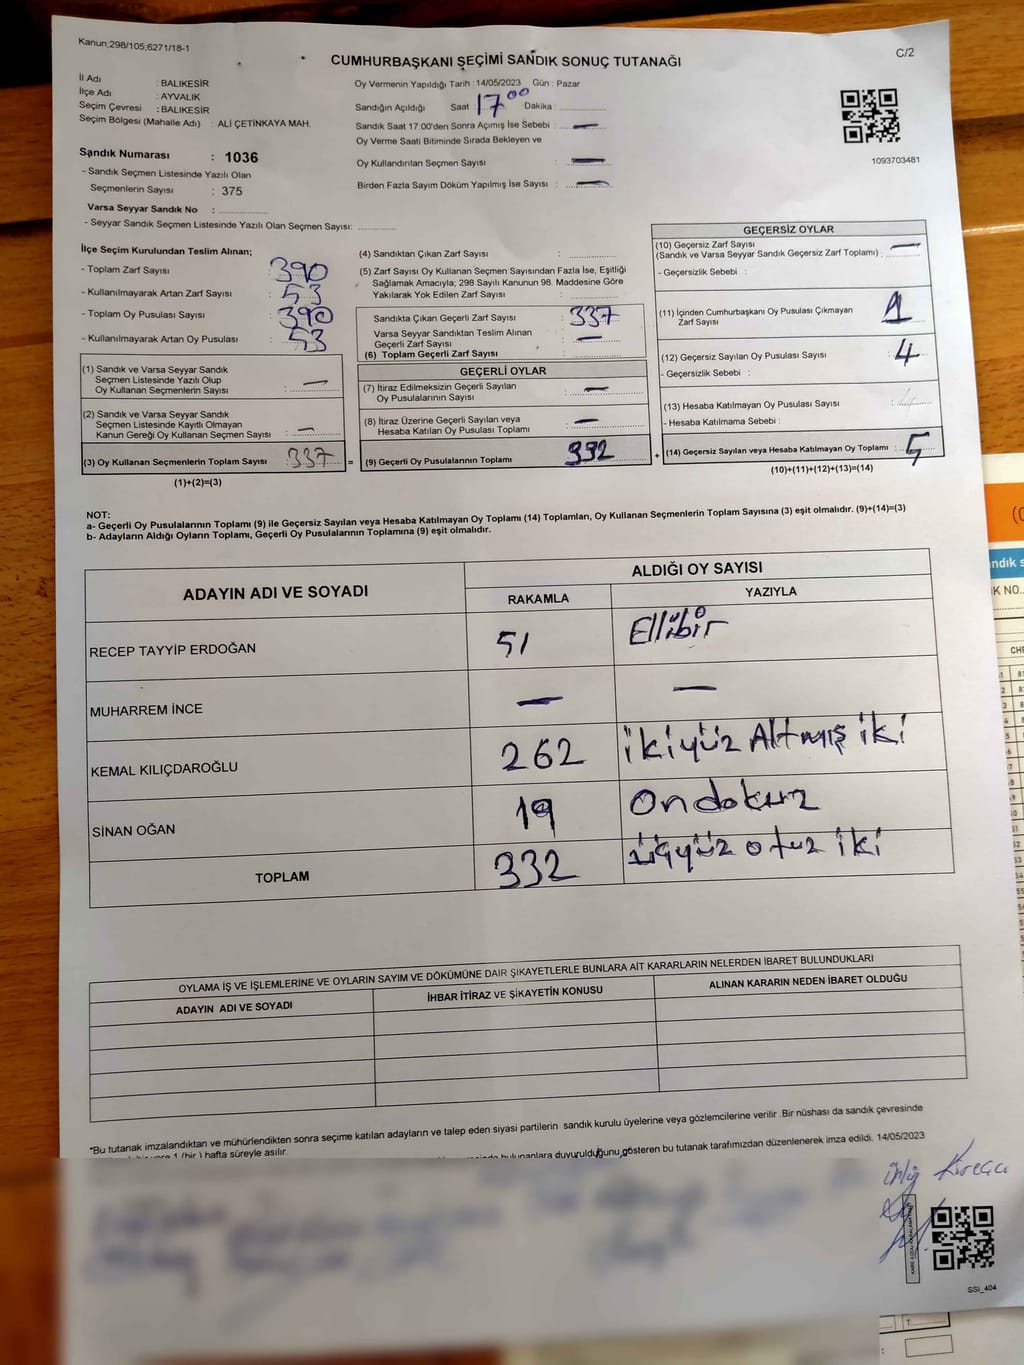 Kanun;298/105;6271/18-1
C/2
CUMHURBAŞKANI SEÇİMİ SANDIK SONUÇ TUTANAĞI
İl Adı : BALIKESİR
İlçe Adı : AYVALIK
Seçim Çevresi : BALIKESİR
Seçim Bölgesi (Mahalle Adı) : ALİ ÇETİNKAYA MAH.
Sandık Numarası : 1036
- Sandık Seçmen Listesinde Yazılı Olan
Seçmenlerin Sayısı : 375
Varsa Seyyar Sandık No : ..............
- Seyyar Sandık Seçmen Listesinde Yazılı Olan Seçmen Sayısı: ............
Oy Vermenin Yapıldığı Tarih : 14/05/2023 Gün : Pazar
Sandığın Açıldığı Saat : 17 00 Dakika : ............
Sandık Saat 17:00'den Sonra Açımış İse Sebebi : —
Oy Verme Saati Bitiminde Sırada Bekleyen ve
Oy Kullandırılan Seçmen Sayısı : —
Birden Fazla Sayım Döküm Yapılmış İse Sayısı : —
1093703481
İlçe Seçim Kurulundan Teslim Alınan;
- Toplam Zarf Sayısı : 390
- Kullanılmayarak Artan Zarf Sayısı : 53
- Toplam Oy Pusulası Sayısı : 390
- Kullanılmayarak Artan Oy Pusulası : 53
(1) Sandık ve Varsa Seyyar Sandık
Seçmen Listesinde Yazılı Olup
Oy Kullanan Seçmenlerin Sayısı : —
(2) Sandık ve Varsa Seyyar Sandık
Seçmen Listesinde Kayıtlı Olmayan
Kanun Gereği Oy Kullanan Seçmen Sayısı : —
(3) Oy Kullanan Seçmenlerin Toplam Sayısı : 337 =
(1)+(2)=(3)
(4) Sandıktan Çıkan Zarf Sayısı : ............
(5) Zarf Sayısı Oy Kullanan Seçmen Sayısından Fazla İse, Eşitliği
Sağlamak Amacıyla; 298 Sayılı Kanunun 98. Maddesine Göre
Yakılarak Yok Edilen Zarf Sayısı : ............
Sandıkta Çıkan Geçerli Zarf Sayısı : 337
Varsa Seyyar Sandıktan Teslim Alınan
Geçerli Zarf Sayısı : —
(6) Toplam Geçerli Zarf Sayısı : ............
GEÇERLİ OYLAR
(7) İtiraz Edilmeksizin Geçerli Sayılan
Oy Pusulalarının Sayısı : —
(8) İtiraz Üzerine Geçerli Sayılan veya
Hesaba Katılan Oy Pusulası Toplamı : —
(9) Geçerli Oy Pusulalarının Toplamı : 332 +
GEÇERSİZ OYLAR
(10) Geçersiz Zarf Sayısı
(Sandık ve Varsa Seyyar Sandık Geçersiz Zarf Toplamı) : —
- Geçersizlik Sebebi :
(11) İçinden Cumhurbaşkanı Oy Pusulası Çıkmayan
Zarf Sayısı : 1
(12) Geçersiz Sayılan Oy Pusulası Sayısı : 4
- Geçersizlik Sebebi :
(13) Hesaba Katılmayan Oy Pusulası Sayısı :
- Hesaba Katılmama Sebebi :
(14) Geçersiz Sayılan veya Hesaba Katılmayan Oy Toplamı : 5
(10)+(11)+(12)+(13)=(14)
NOT:
a- Geçerli Oy Pusulalarının Toplamı (9) ile Geçersiz Sayılan veya Hesaba Katılmayan Oy Toplamı (14) Toplamları, Oy Kullanan Seçmenlerin Toplam Sayısına (3) eşit olmalıdır. (9)+(14)=(3)
b- Adayların Aldığı Oyların Toplamı, Geçerli Oy Pusulalarının Toplamına (9) eşit olmalıdır.
ADAYIN ADI VE SOYADI
ALDIĞI OY SAYISI
RAKAMLA YAZIYLA
RECEP TAYYİP ERDOĞAN 51 Ellibir
MUHARREM İNCE — —
KEMAL KILIÇDAROĞLU 262 ikiyüz Altmış iki
SİNAN OĞAN 19 Ondokuz
TOPLAM 332 üçyüz otuz iki
OYLAMA İŞ VE İŞLEMLERİNE VE OYLARIN SAYIM VE DÖKÜMÜNE DAİR ŞİKAYETLERLE BUNLARA AİT KARARLARIN NELERDEN İBARET BULUNDUKLARI
ADAYIN ADI VE SOYADI İHBAR İTİRAZ VE ŞİKAYETİN KONUSU ALINAN KARARIN NEDEN İBARET OLDUĞU
*Bu tutanak imzalandıktan ve mühürlendikten sonra seçime katılan adayların ve talep eden siyasi partilerin sandık kurulu üyelerine veya gözlemcilerine verilir .Bir nüshası da sandık çevresinde
1 (bir ) hafta süreyle asılır.
bulunanlara duyurulduğunu gösteren bu tutanak tarafımızdan düzenlenerek imza edildi. 14/05/2023
SSI_404